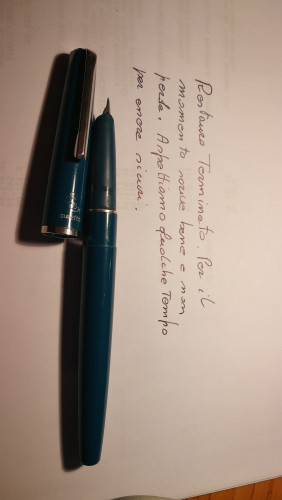 Restauro Terminato. Per il
momento scrive bene e non
perde. Aspettiamo qualche Tempo
per essere sicuri.